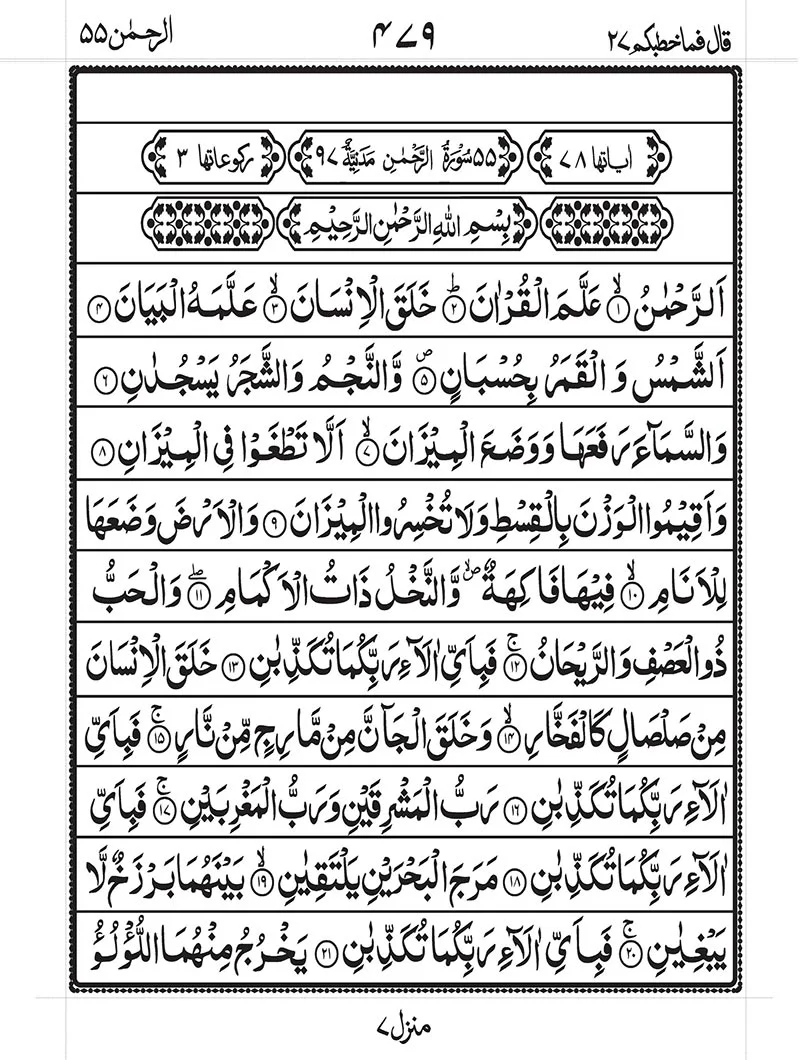 قال فما خطبکم ۲۷
۴۷۹
الرحمٰن ۵۵
اٰیاتها ۷۸
۵۵ سُوْرَةُ الرَّحْمٰنِ مَدَنِيَّةٌ ۹۷
رکوعاتها ۳
بِسْمِ اللّٰهِ الرَّحْمٰنِ الرَّحِيْمِ
اَلرَّحْمٰنُ ۙ﴿۱﴾ عَلَّمَ الْقُرْاٰنَ ؕ﴿۲﴾ خَلَقَ الْاِنْسَانَ ۙ﴿۳﴾ عَلَّمَهُ الْبَيَانَ ﴿۴﴾
اَلشَّمْسُ وَ الْقَمَرُ بِحُسْبَانٍ ۪﴿۵﴾ وَّ النَّجْمُ وَالشَّجَرُ يَسْجُدٰنِ ﴿۶﴾
وَالسَّمَآءَ رَفَعَهَا وَ وَضَعَ الْمِيْزَانَ ۙ﴿۷﴾ اَلَّا تَطْغَوْا فِی الْمِيْزَانِ ﴿۸﴾
وَاَقِيْمُوا الْوَزْنَ بِالْقِسْطِ وَلَا تُخْسِرُوا الْمِيْزَانَ ﴿۹﴾ وَالْاَرْضَ وَضَعَهَا
لِلْاَنَامِ ۙ﴿۱۰﴾ فِيْهَا فَاكِهَةٌ ۪ۙ وَّ النَّخْلُ ذَاتُ الْاَكْمَامِ ۖ﴿۱۱﴾ وَ الْحَبُّ
ذُو الْعَصْفِ وَ الرَّيْحَانُ ۚ﴿۱۲﴾ فَبِاَیِّ اٰلَآءِ رَبِّكُمَا تُكَذِّبٰنِ ﴿۱۳﴾ خَلَقَ الْاِنْسَانَ
مِنْ صَلْصَالٍ كَالْفَخَّارِ ۙ﴿۱۴﴾ وَ خَلَقَ الْجَآنَّ مِنْ مَّارِجٍ مِّنْ نَّارٍ ۚ﴿۱۵﴾ فَبِاَیِّ
اٰلَآءِ رَبِّكُمَا تُكَذِّبٰنِ ﴿۱۶﴾ رَبُّ الْمَشْرِقَيْنِ وَ رَبُّ الْمَغْرِبَيْنِ ۚ﴿۱۷﴾ فَبِاَیِّ
اٰلَآءِ رَبِّكُمَا تُكَذِّبٰنِ ﴿۱۸﴾ مَرَجَ الْبَحْرَيْنِ يَلْتَقِيٰنِ ۙ﴿۱۹﴾ بَيْنَهُمَا بَرْزَخٌ لَّا
يَبْغِيٰنِ ۚ﴿۲۰﴾ فَبِاَیِّ اٰلَآءِ رَبِّكُمَا تُكَذِّبٰنِ ﴿۲۱﴾ يَخْرُجُ مِنْهُمَا اللُّؤْلُؤُ
منزل ۷